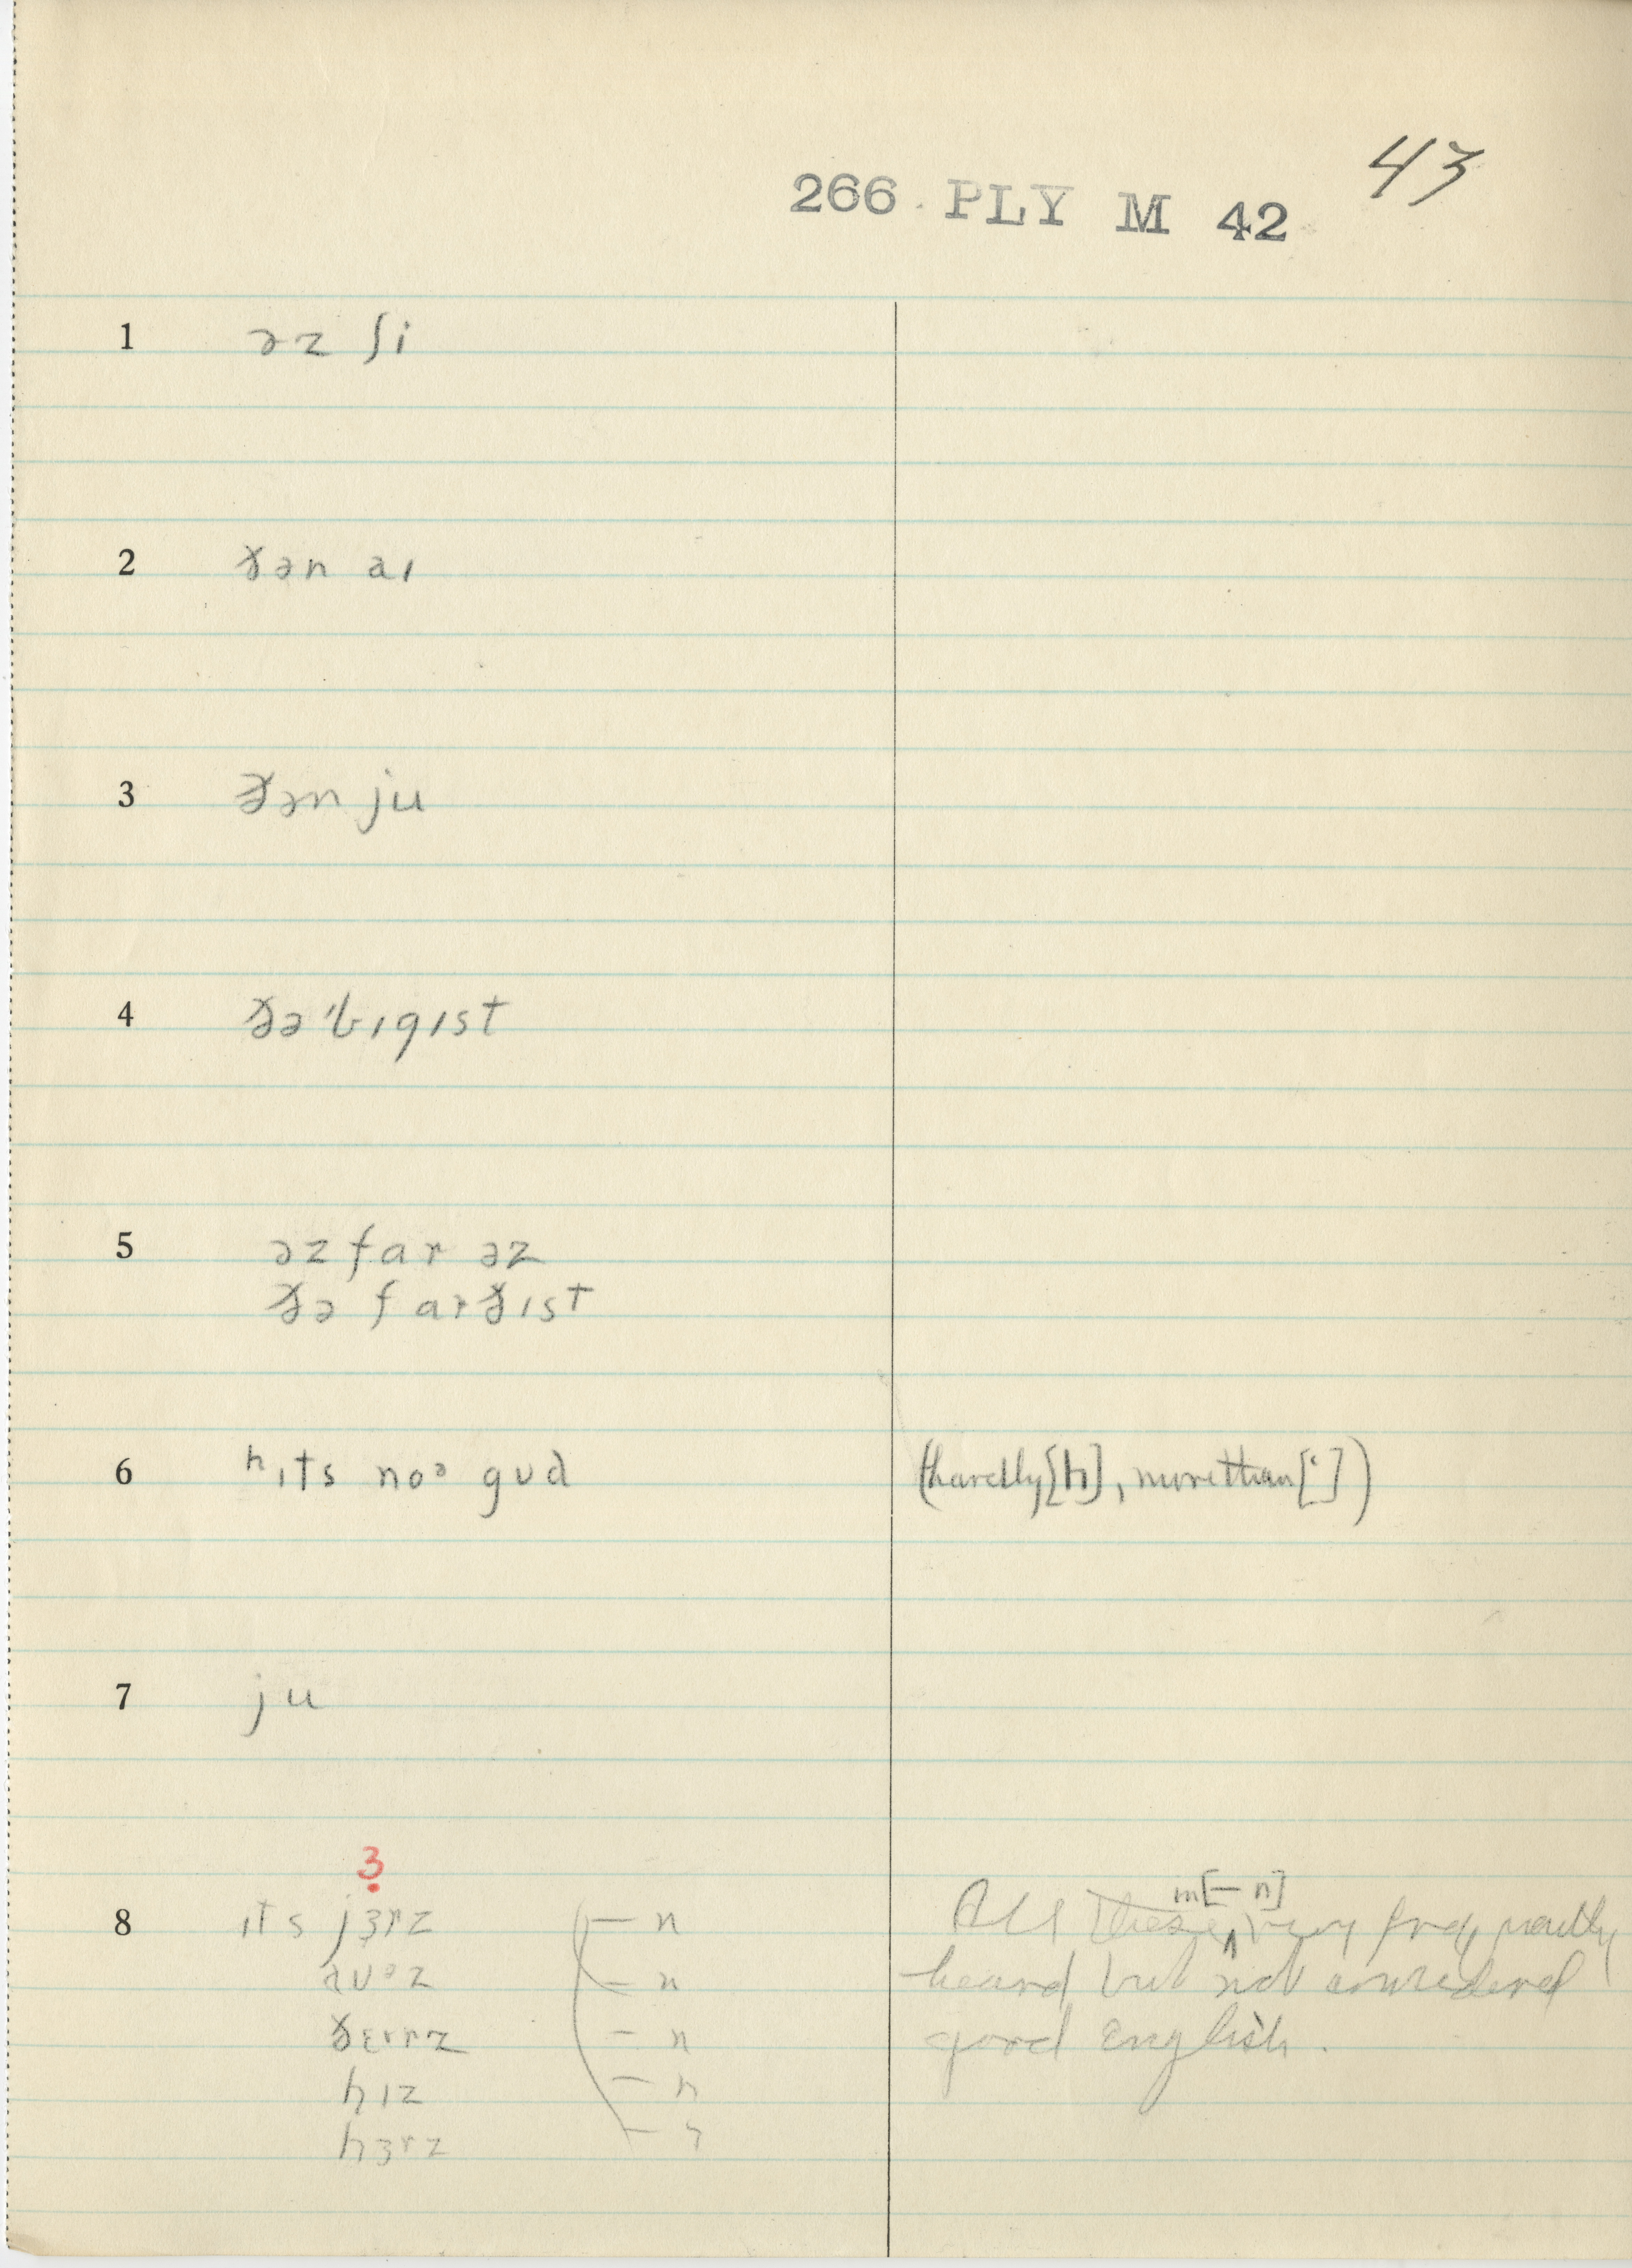 43
266 PLY M 42
1 əz ʃi
2 ðən aɪ
3 ðən ju
4 ðə ˈbɪgɪst
5 əz far əz
ðə farðɪst
6 ʰɪts noᵊ gʊd (hardly [h], more than [ʽ])
7 ju
3
8 ɪts jɜrz — n All these m[— n] very frequently
aʊᵊz — n heard but not considered
ðɛrrz — n good English.
hɪz — n
hɜrz — n